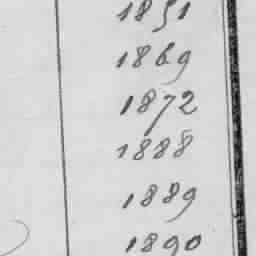 1851
1869
1872
1888
1889
1890